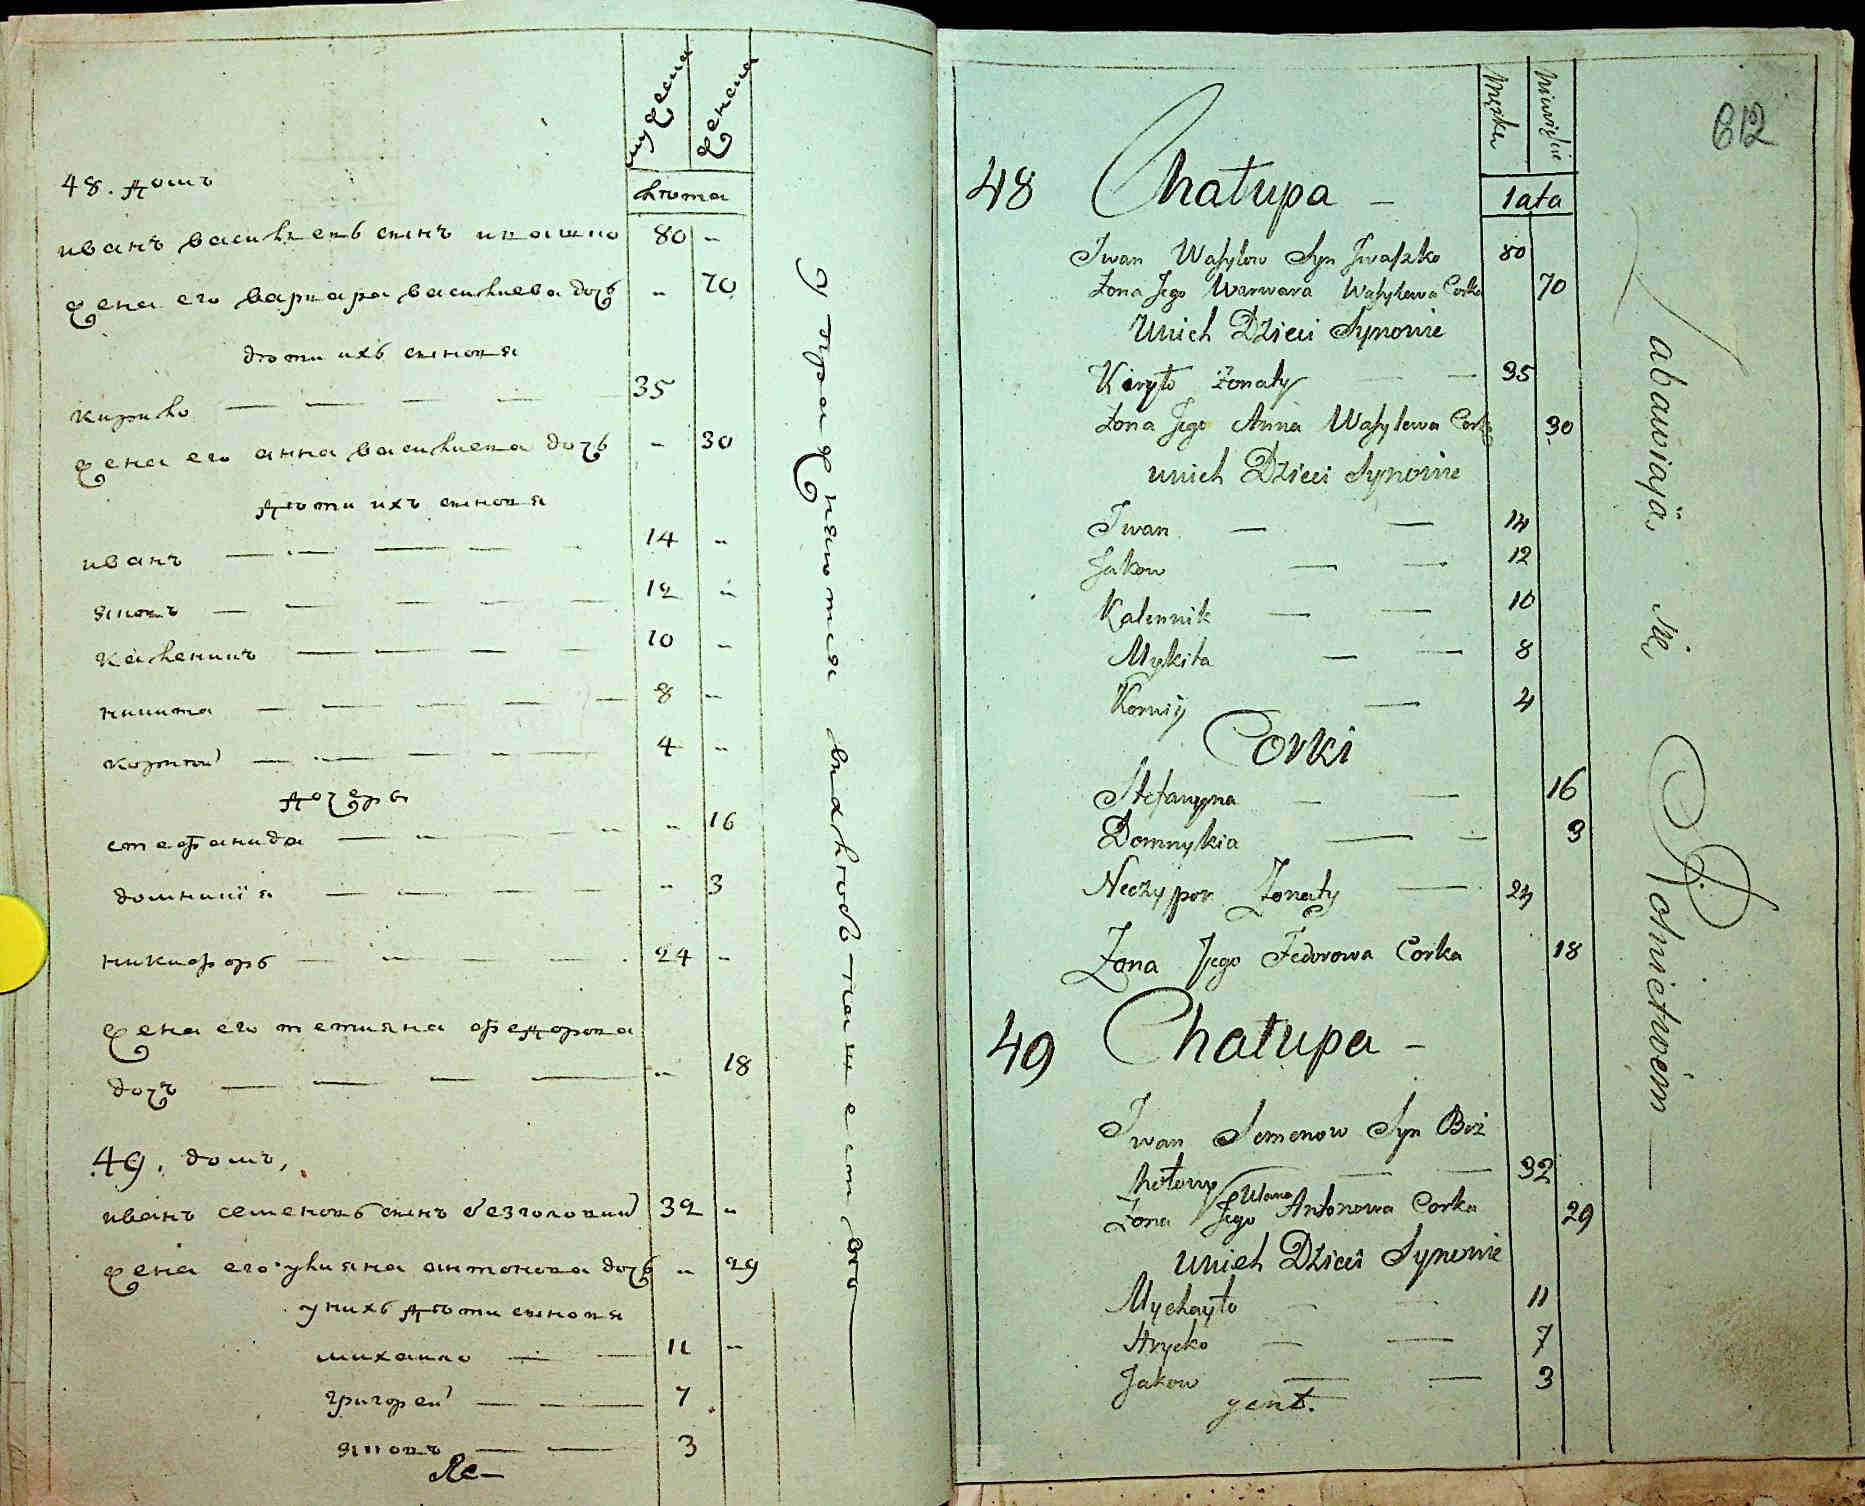 мужеска
женска
лѣта
48. домъ
иванъ василевъ синъ ивашко 80 "
жена его варвара василиева дочь " 70
дѣти ихъ синовя
кирило 35
жена его анна василиева дочь " 30
дѣти ихъ синовя
иванъ 14 "
яковъ 12 "
каленикъ 10 "
никита 8 "
корний 4 "
дочерѣ
стефанида " 16
домникия " 3
никифоръ 24 "
жена его тетияна федорова
дочъ " 18
49. домъ,
иванъ семеновъ синъ безголовий 32 "
жена его улияна антонова дочь " 29
у нихъ дѣти синовя
михаило 11 "
григорей 7
яковъ 3
Яс
упражняются въ хлѣбопашество
612
męska
niewieścia
lata
48 Chałupa
Iwan Wasylow Syn Iwaszko 80
Żona Jego Warwara Wasylewa Corka 70
Unich Dzieci Synowie
Kiryło Żonaty 35
Żona Jego Anna Wasylewa Corka 30
unich Dzieci Synowie
Iwan 14
Jakow 12
Kalennik 10
Mykita 8
Korniy 4
Corki
Stefanyna 16
Domnykia 3
Neczypor Żonaty 24
Żona Jego Fedorowa Corka 18
49 Chałupa
Iwan Semenow Syn Bez
hołowy 32
Żona Jego Ulana Antonowa Corka 29
Unich Dzieci Synowie
Mychayło 11
Hrycko 7
Jakow 3
Zabawiają się Rolnictwem